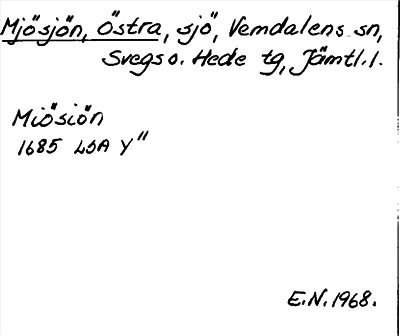 Mjösjön, Östra, sjö, Vemdalens sn,
Svegs o. Hede tg, Jämtl. l.
Miösiön
1685 LSA Y"
E.N. 1968.